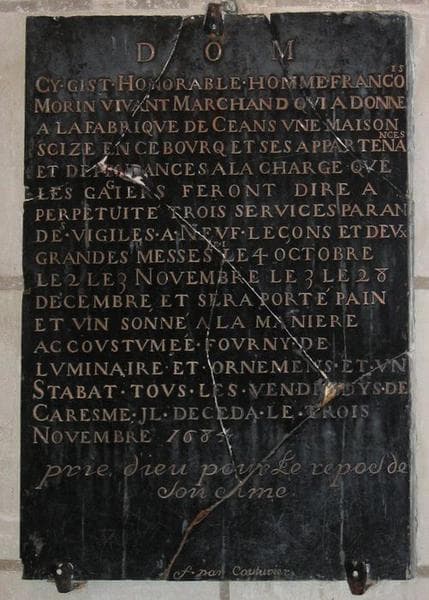 D O M
CY·GIST·HONORABLE·HOMME FRANCOIS
MORIN VIVANT MARCHAND QVI A DONNE
A LA FABRIQVE DE CEANS VNE MAISON
SCIZE EN CE BOVRQ ET SES APPARTENANCES
ET DEPENDANCES A LA CHARGE QVE
LES GAGIERS FERONT DIRE A
PERPETVITE TROIS SERVICES PARAN
DES·VIGILES·A·NEVF·LEÇONS ET DEVX
GRANDES MESSES LE 4 OCTOBRE
LE 2 LE 3 NOVEMBRE LE 3 LE 28
DECEMBRE ET SERA PORTÉ PAIN
ET VIN SONNE A LA MANIERE
ACCOVSTVMÉE·FOVRNY·DE
LVMINAIRE·ET·ORNEMENS·ET·VN
STABAT·TOVS·LES·VENDREDYS·DE
CARESME·JL·DECEDA·LE·TROIS
NOVEMBRE 1684
prie dieu pour Le repos de
Son Ame.
f. par Couluvier